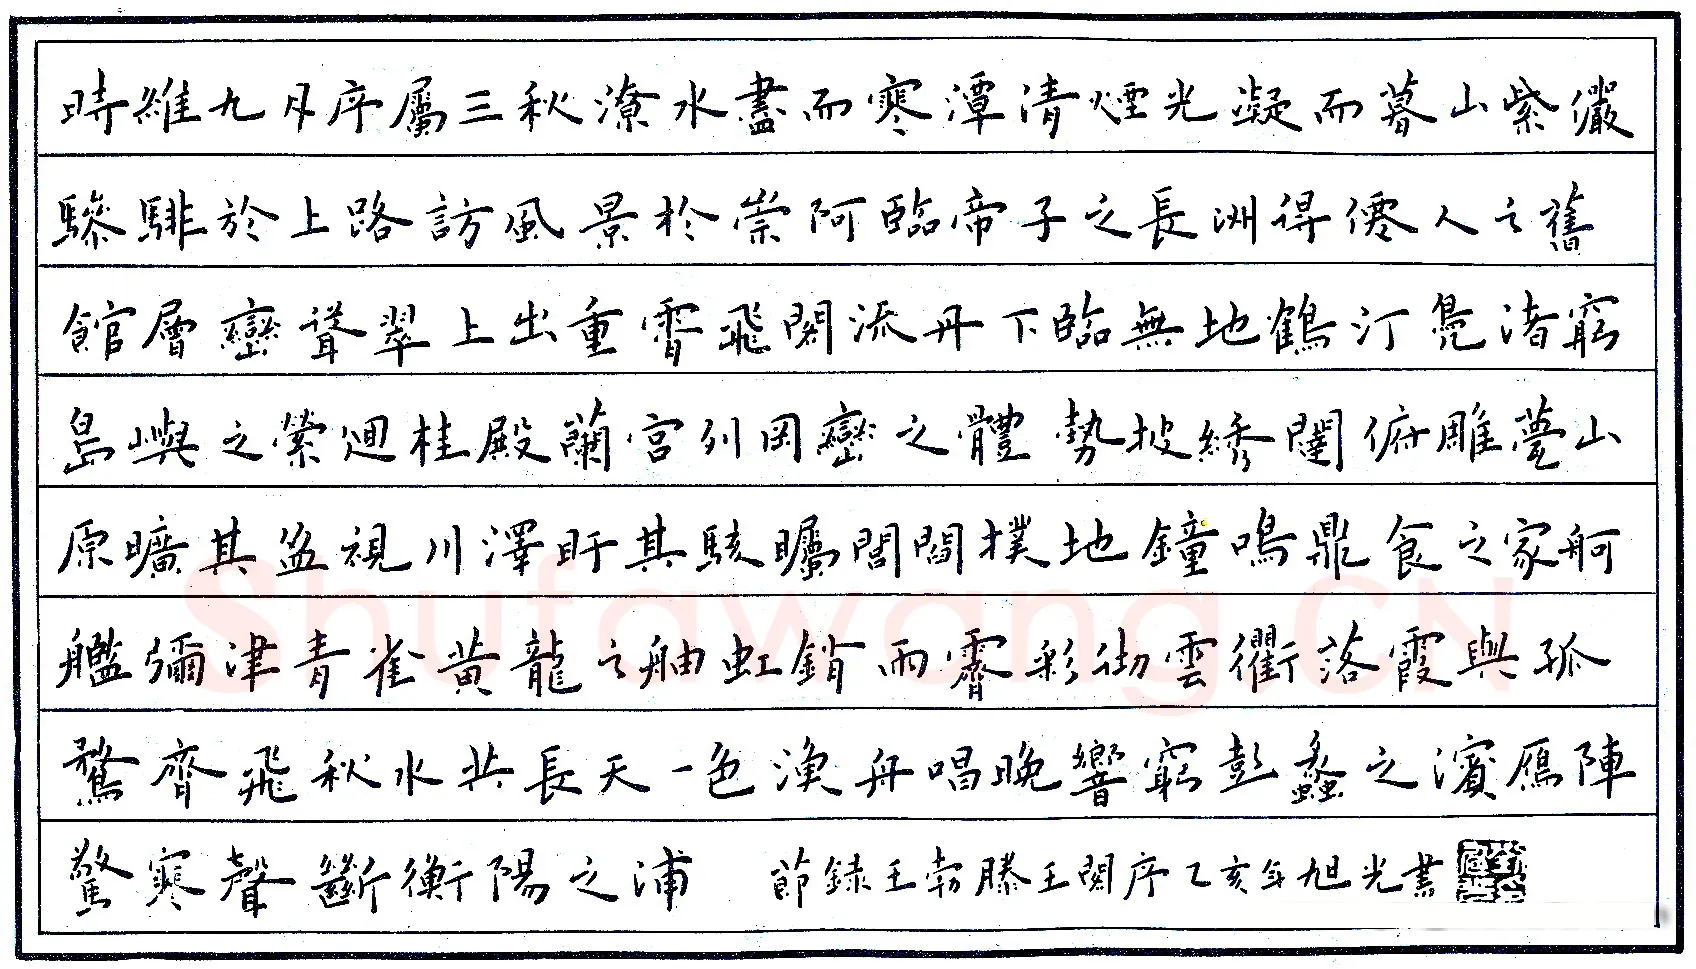 時維九月序屬三秋潦水盡而寒潭清煙光凝而暮山紫儼
驂騑於上路訪風景於崇阿臨帝子之長洲得僊人之舊
館層巒聳翠上出重霄飛閣流丹下臨無地鶴汀鳧渚窮
島嶼之縈迴桂殿蘭宮列岡巒之體勢披綉闥俯雕甍山
原曠其盈視川澤盱其駭矚閭閻撲地鐘鳴鼎食之家舸
艦彌津青雀黃龍之舳虹銷雨霽彩徹雲衢落霞與孤
鶩齊飛秋水共長天一色漁舟唱晚響窮彭蠡之濱雁陣
驚寒聲斷衡陽之浦 節録王勃滕王閣序乙亥年旭光書
Shufawang.CN